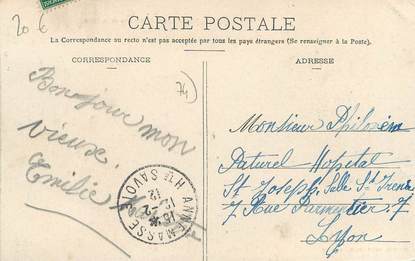 20 €
CARTE POSTALE
La Correspondance au recto n'est pas acceptée par tous les pays étrangers (Se renseigner à la Poste).
CORRESPONDANCE
ADRESSE
74)
Bonjour mon
vieux.
Emilie
ANNEMASSE
Hte SAVOIE
Monsieur Philozém
Paturel Hopital
St Joseph, Salle St Irené
7 Rue Parmentier 7
Lyon